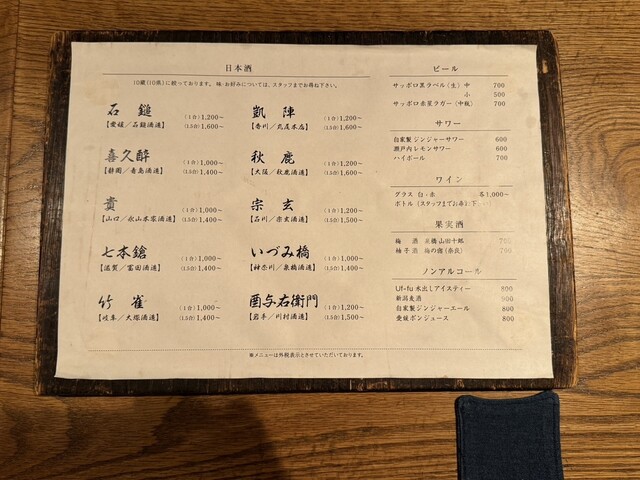 日本酒
10蔵(10県)に絞っております。味・お好みについては、スタッフまでお尋ね下さい。
石鎚 (1合)1,200~
【愛媛/石鎚酒造】 (1.5合)1,600~
喜久酔 (1合)1,000~
【静岡/青島酒造】 (1.5合)1,400~
貴 (1合)1,000~
【山口/永山本家酒造】 (1.5合)1,400~
七本鎗 (1合)1,000~
【滋賀/冨田酒造】 (1.5合)1,400~
竹雀 (1合)1,000~
【岐阜/大塚酒造】 (1.5合)1,400~
凱陣 (1合)1,200~
【香川/丸尾本店】 (1.5合)1,600~
秋鹿 (1合)1,200~
【大阪/秋鹿酒造】 (1.5合)1,600~
宗玄 (1合)1,200~
【石川/宗玄酒造】 (1.5合)1,500~
いづみ橋 (1合)1,000~
【神奈川/泉橋酒造】 (1.5合)1,400~
酉与右衛門 (1合)1,200~
【岩手/川村酒造】 (1.5合)1,500~
ビール
サッポロ黒ラベル(生) 中 700
小 500
サッポロ赤星ラガー(中瓶) 700
サワー
自家製ジンジャーサワー 600
瀬戸内レモンサワー 600
ハイボール 700
ワイン
グラス 白・赤 各1,000~
ボトル (スタッフまでお尋ね下さい)
果実酒
梅酒 泉橋 山田十郎 700
柚子酒 梅の宿(奈良) 700
ノンアルコール
Uf-fu 水出しアイスティー 800
新潟麦酒 900
自家製ジンジャーエール 800
愛媛ポンジュース 800
※メニューは外税表示とさせていただいております。